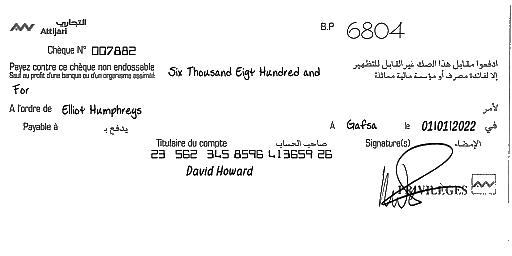 التجاري
Attijari
B.P 6804
Chèque N° 007882
Payez contre ce chèque non endossable
Sauf au profit d'une banque ou d'un organisme assimilé
Six Thousand Eigt Hundred and
For
ادفعوا مقابل هذا الصك غير القابل للتظهير
إلا لفائدة مصرف أو مؤسسة مالية مماثلة
A l'ordre de Elliot Humphreys لأمر
Payable à يدفع بـ
A Gafsa le 01/01/2022 في
Titulaire du compte صاحب الحساب
Signature(s) الإمضاء
23 562 345 8596 413659 26
David Howard
PRIVILÈGES